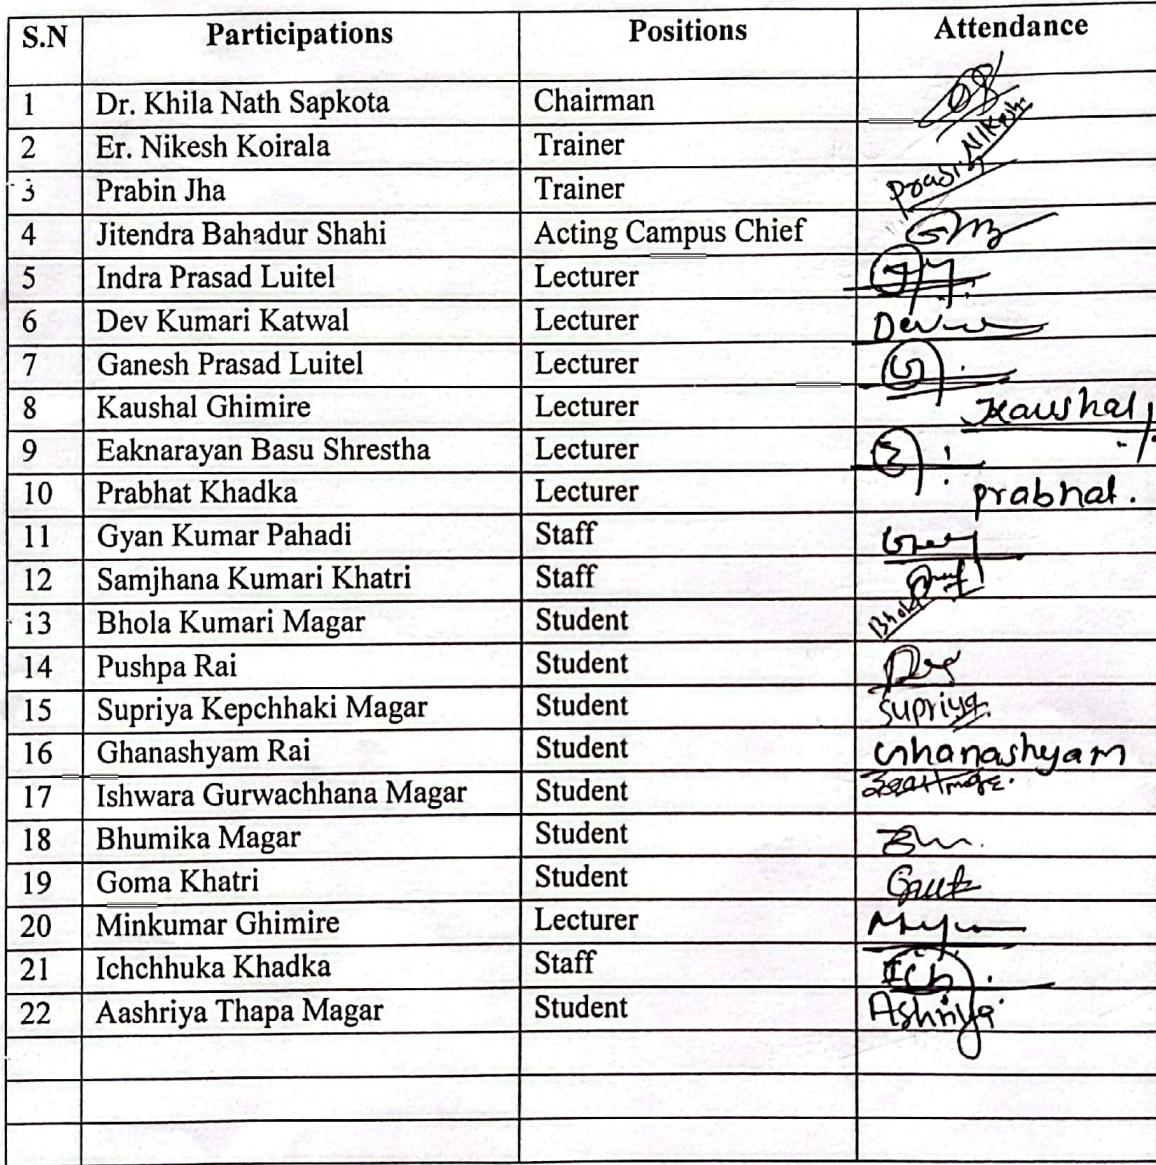 S.N Participations Positions Attendance
1 Dr. Khila Nath Sapkota Chairman
2 Er. Nikesh Koirala Trainer Nikesh
3 Prabin Jha Trainer
4 Jitendra Bahadur Shahi Acting Campus Chief
5 Indra Prasad Luitel Lecturer
6 Dev Kumari Katwal Lecturer
7 Ganesh Prasad Luitel Lecturer
8 Kaushal Ghimire Lecturer Kaushal
9 Eaknarayan Basu Shrestha Lecturer
10 Prabhat Khadka Lecturer prabhat.
11 Gyan Kumar Pahadi Staff
12 Samjhana Kumari Khatri Staff
13 Bhola Kumari Magar Student Bhola
14 Pushpa Rai Student
15 Supriya Kepchhaki Magar Student Supriya
16 Ghanashyam Rai Student Ghanashyam
17 Ishwara Gurwachhana Magar Student
18 Bhumika Magar Student
19 Goma Khatri Student
20 Minkumar Ghimire Lecturer
21 Ichchhuka Khadka Staff Ich
22 Aashriya Thapa Magar Student Ashriya